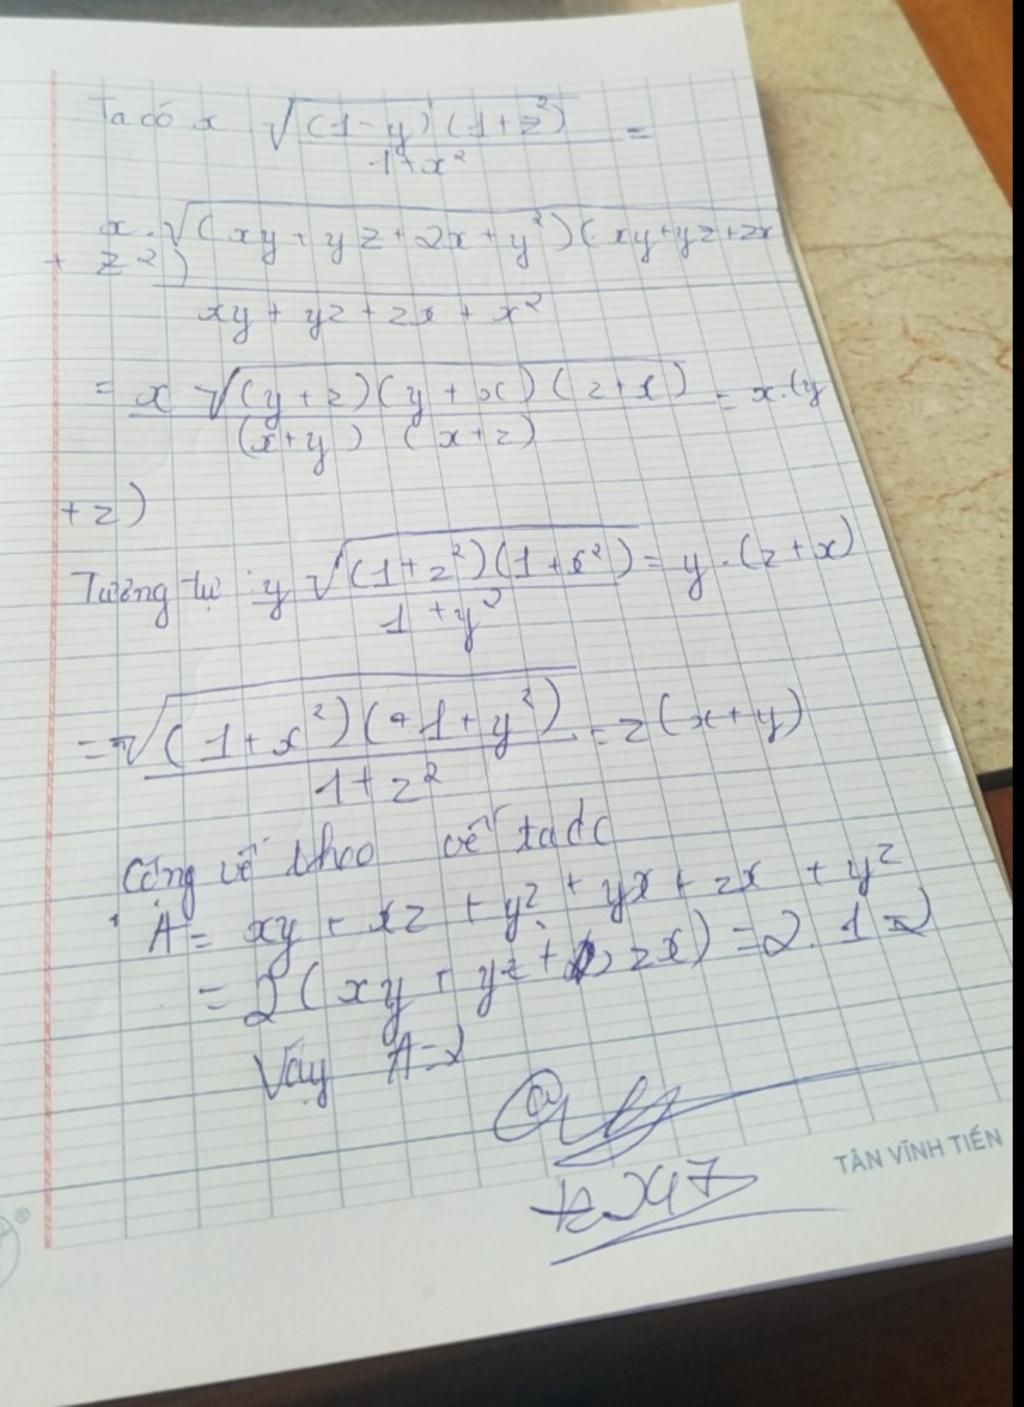 Ta có x √(1-y)(1+z²) / 1+x² =
x.√(xy+yz+2x+y²)(xy+yz+zx
+ z²) / xy+yz+zx+x²
= x √(y+z)(y+x)(z+x) / (x+y) (x+z) = x.(y
+z)
Tương tự : y √(1+z²)(1+x²) / 1+y² = y.(z+x)
= √(1+x²)(+1+y²) / 1+z² = z(x+y)
Cộng vế theo vế ta dc
A = xy + xz + y² + yx + zx + y²
= 2(xy + yz + zx) = 2.1 = 2
Vậy A=2
TÂN VĨNH TIẾN